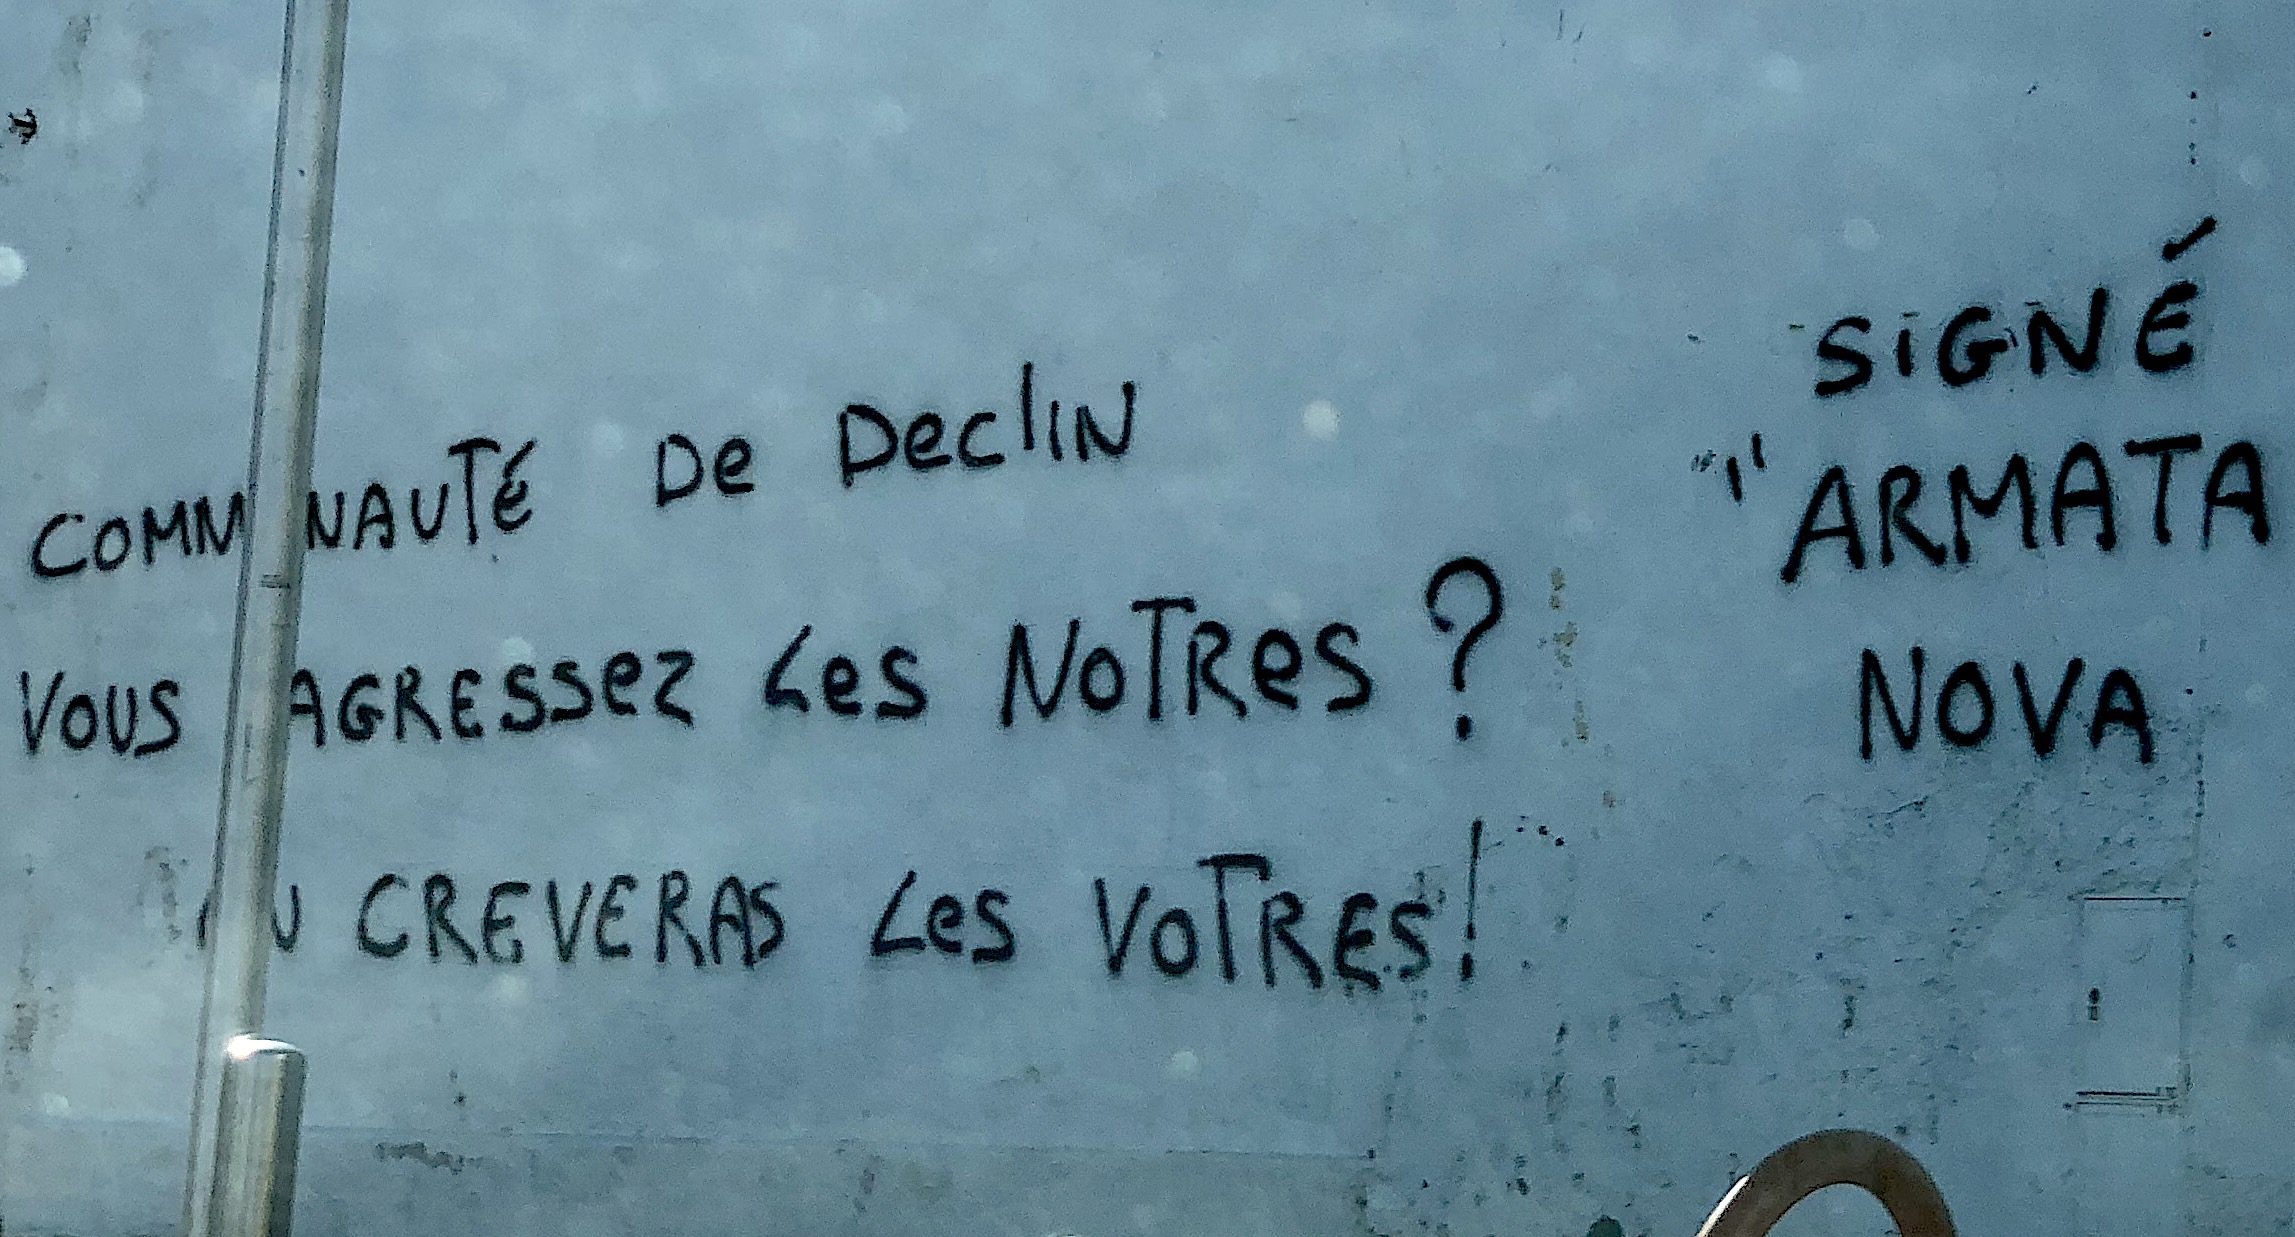 COMMUNAUTÉ De DeclIN
VOUS AGRESSez Les NoTRes ?
CREVERAS Les VoTRES !
SiGNÉ
"ARMATA
NOVA